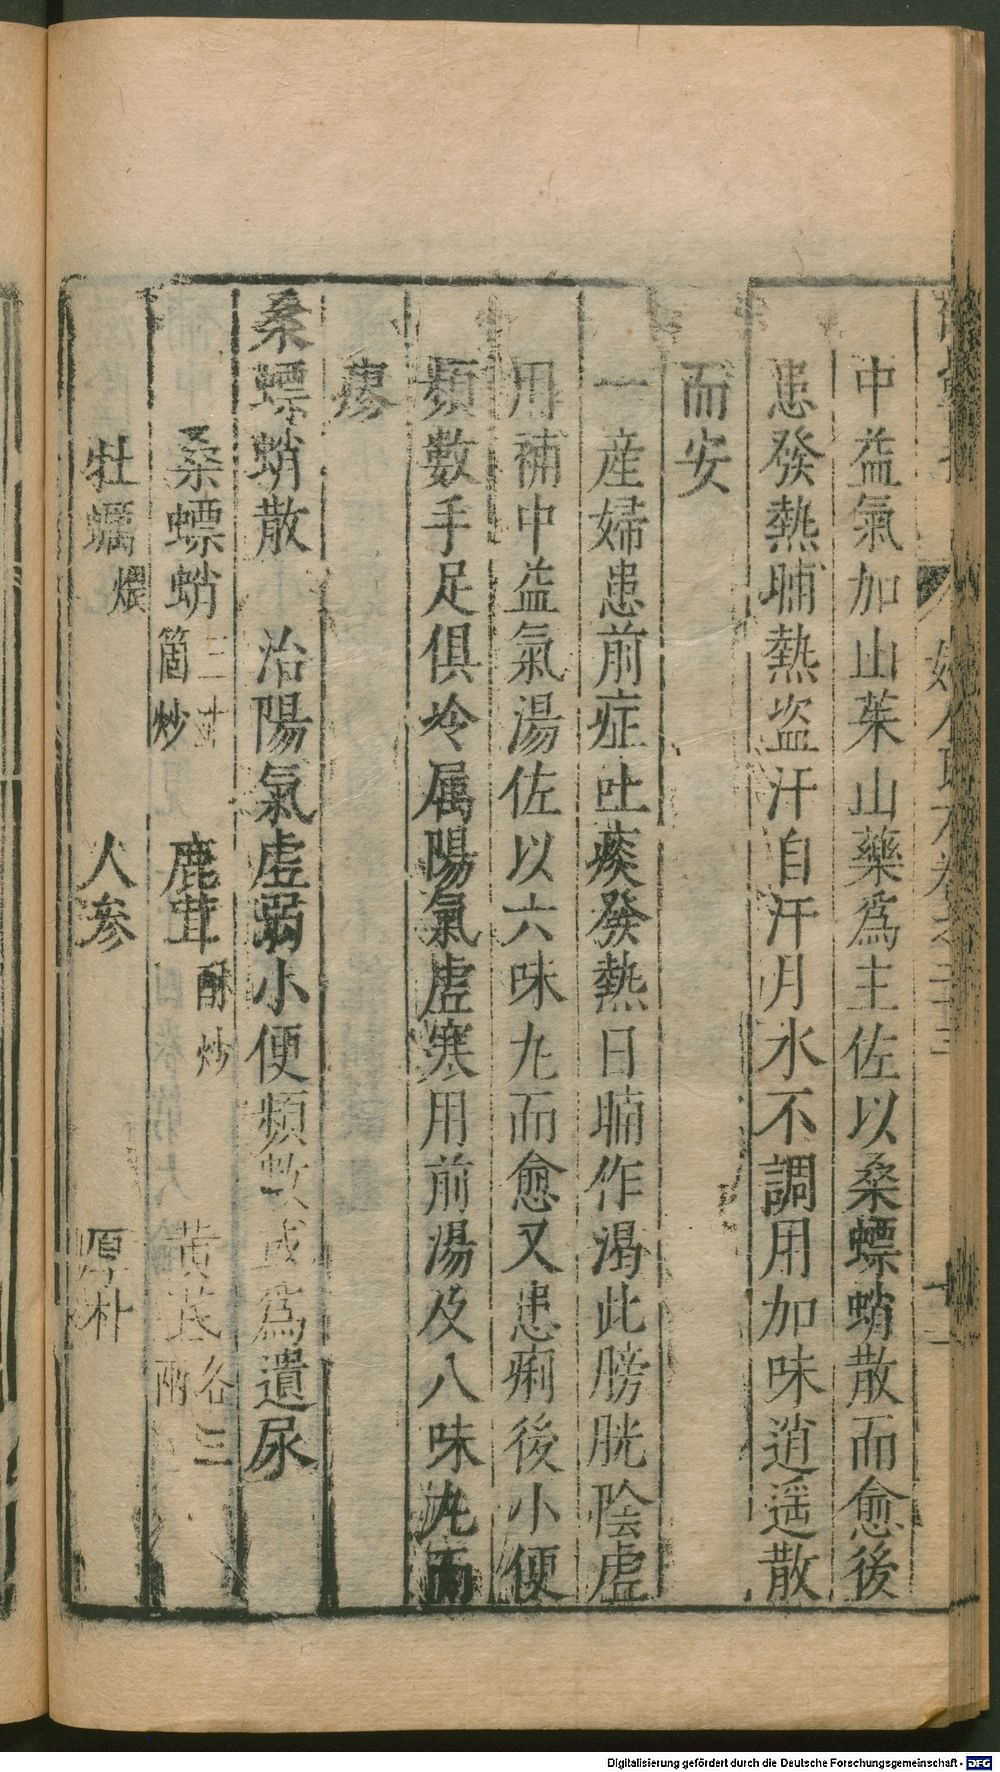 中益氣加山茱山藥爲主佐以桑螵蛸散而愈後
患發熱晡熱盗汗自汗月水不調用加味逍遥散
而安
一産婦患前症吐痰發熱日晡作渴此膀胱陰虚
用補中益氣湯佐以六味丸而愈又患痢後小便
頻數手足俱冷属陽氣虚寒用前湯及八味丸而
廖
桑螵蛸散 治陽氣虚弱小便頻數或爲遺尿
桑螵蛸三十箇炒 鹿茸酥炒 黄芪各三兩
牡蠣煨 人参 厚朴
Digitalisierung gefördert durch die Deutsche Forschungsgemeinschaft - DFG